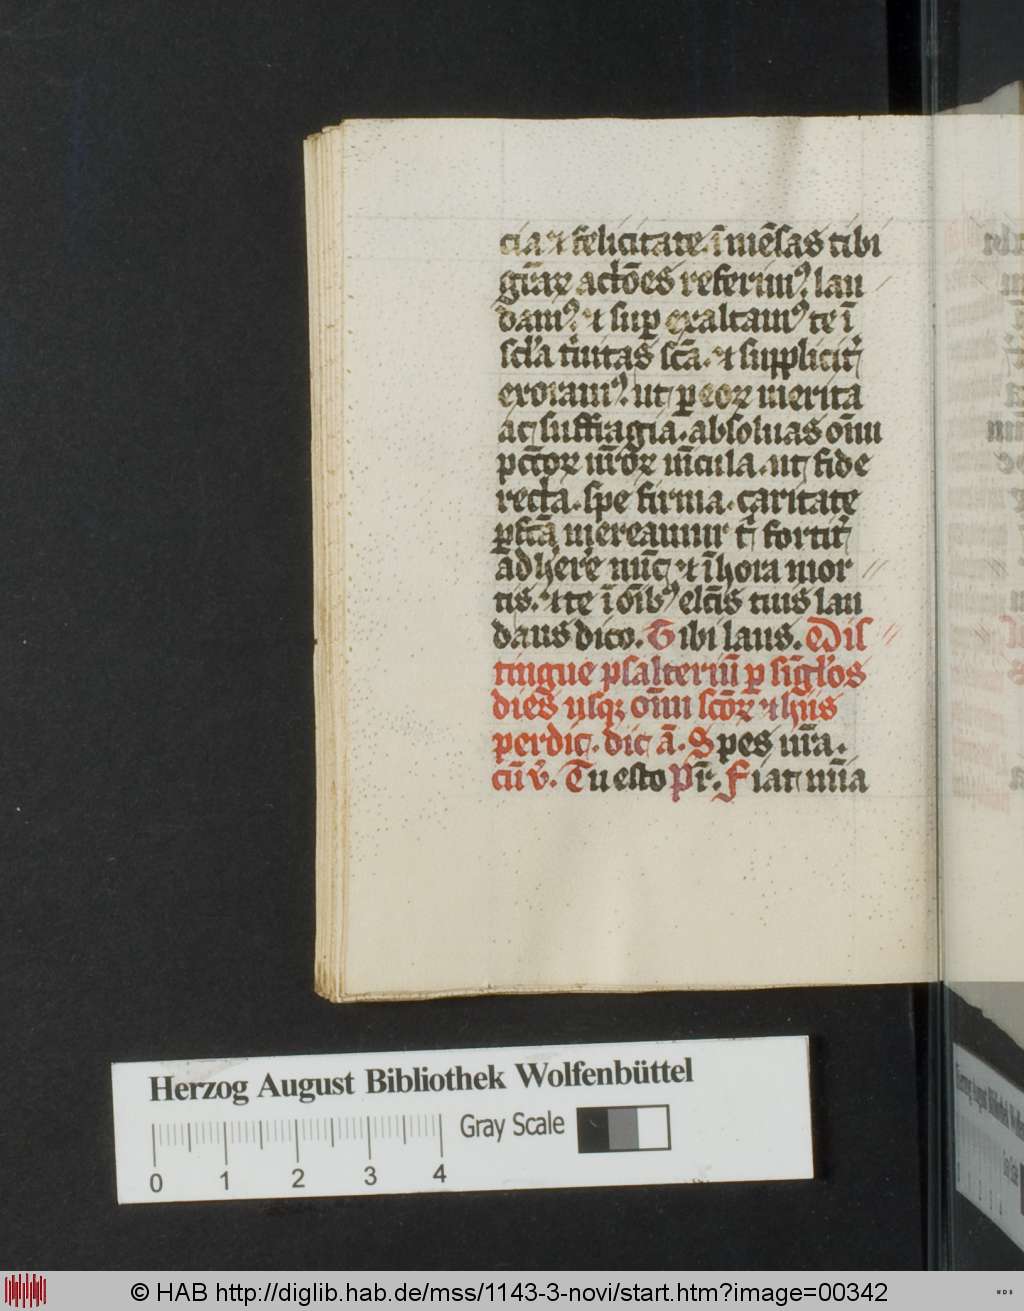 cia ⁊ felicitate. ī mēsas tibi
gr̄aꝝ actōes referimꝰ. lau
damꝰ. ⁊ suꝑ exaltamꝰ te ī
scl̓a t͛nitas scā. ⁊ supplicit͛
exoramꝰ. ut ꝑ eoꝝ merita
ac suffragia. absoluas om̄iu
pctōꝝ nr̄oꝝ uīcula. ut fide
recta. spe firma. caritate
ꝑfctā mereamur t͛ fortit͛
adherē nūc ⁊ ī hora mor
tis. ⁊ te ī oībꝰ elc̄is tuis lau
daus dico. Tibi laus. Dis
tingue psalteriū ꝑ sīgl̓os
dies usqꝫ om̄iu scōꝝ ⁊ h̄uis
perdic. dic ā. Spes nr̄a.
cū v̓. Tu esto Pr̄. Fiat mīa
Herzog August Bibliothek Wolfenbüttel
Gray Scale
0 1 2 3 4
© HAB http://diglib.hab.de/mss/1143-3-novi/start.htm?image=00342